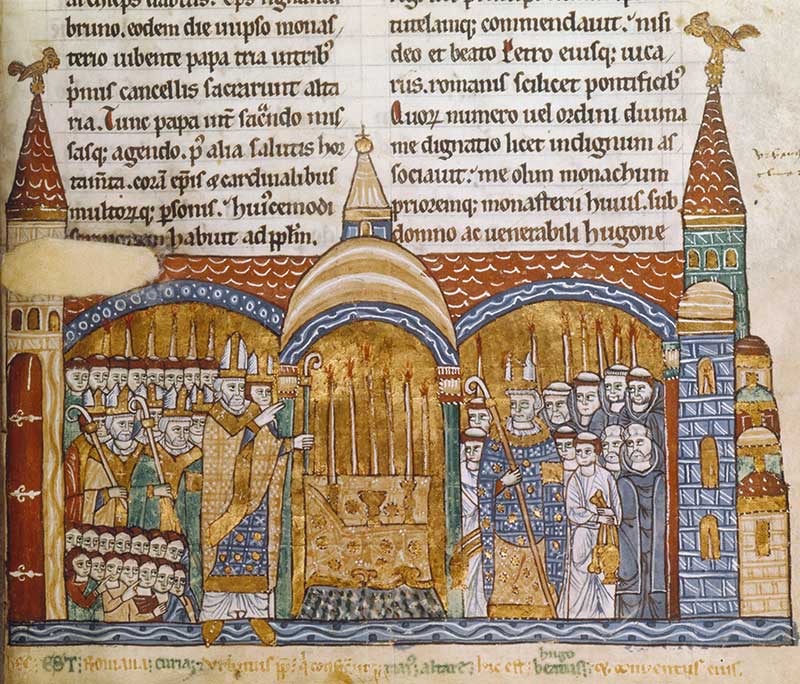 bruno. eodem die in ipso monas
terio iubente papa tria in tribȝ
p̄mis cancellis sacrarunt alta
ria. Tunc papa int̄ sac̄ndo mis
sasq; agendo. p̄ alia salutis hor
tam̄ta. corā ep̄is ⁊ cardinalibus
multorq; p̄sonis. huiꝰcemodi
habuit ad pp̄lm.
tutelamq; commendauit. nisi
deo et beato Petro eiusq; uica
riis. romanis scilicet pontificibȝ
Quorꝝ numero uel ordini diuina
me dignatio licet indignum as
sociauit. me olim monachum
prioremq; monasterii huius. sub
domno ac uenerabili hugone
EST: Romana: curia:
altare: hic est: hugo
conuentus eius.